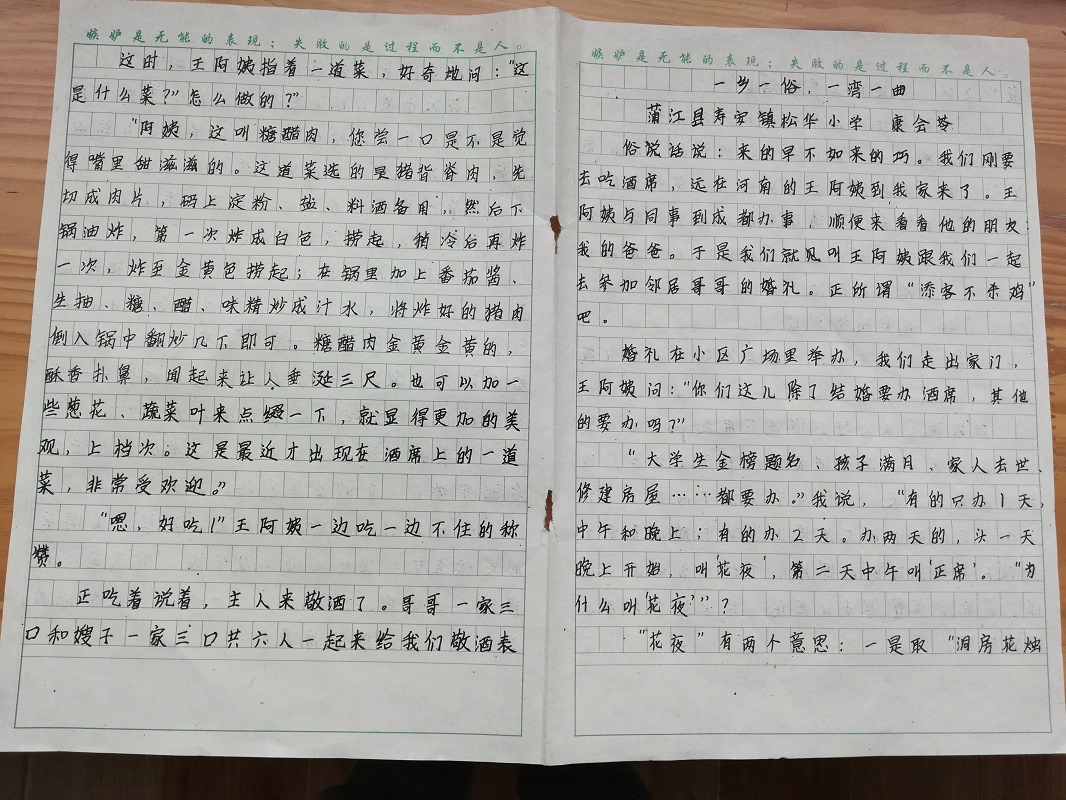 嫉妒是无能的表现；失败的是过程而不是人。
这时，王阿姨指着一道菜，好奇地问："这
是什么菜？"怎么做的？"
"阿姨，这叫糖醋肉，您尝一口是不是觉
得嘴里甜滋滋的。这道菜选的是猪背脊肉，先
切成肉片，码上淀粉、盐、料酒备用，然后下
锅油炸，第一次炸成白色，捞起，稍冷后再炸
一次，炸至金黄色捞起；在锅里加上番茄酱、
生抽、糖、醋、味精炒成汁水，将炸好的猪肉
倒入锅中翻炒几下即可。糖醋肉金黄金黄的，
酥香扑鼻，闻起来让人垂涎三尺。也可以加一
些葱花、蔬菜叶来点缀一下，就显得更加的美
观，上档次。这是最近才出现在酒席上的一道
菜，非常受欢迎。"
"嗯，好吃！"王阿姨一边吃一边不住的称
赞。
正吃着说着，主人来敬酒了。哥哥一家三
口和嫂子一家三口共六人一起来给我们敬酒表
嫉妒是无能的表现；失败的是过程而不是人。
一乡一俗，一湾一曲
蒲江县寿安镇松华小学 康会苓
俗说话说：来的早不如来的巧。我们刚要
去吃酒席，远在河南的王阿姨到我家来了。王
阿姨与同事到成都办事，顺便来看看他的朋友：
我的爸爸。于是我们就见叫王阿姨跟我们一起
去参加邻居哥哥的婚礼。正所谓"添客不杀鸡"
吧。
婚礼在小区广场里举办，我们走出家门，
王阿姨问："你们这儿除了结婚要办酒席，其他
的要办吗？"
"大学生金榜题名、孩子满月、家人去世、
修建房屋……都要办。"我说，"有的只办1天，
中午和晚上；有的办2天。办两天的，头一天
晚上开始，叫'花夜'，第二天中午叫'正席'。"为
什么叫'花夜'"？
"花夜"有两个意思：一是取"洞房花烛